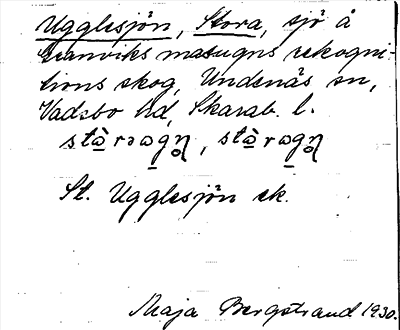 Ugglesjön, Stora, sjö å
Granviks masugns rekogni-
tions skog, Undenäs sn,
Vadsbo hd, Skarab. l.
St. Ugglesjön ek.
Maja Bergstrand 1930.